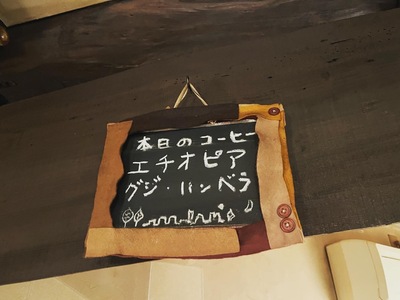 本日のコーヒー
エチオピア
グジ・ハンベラ